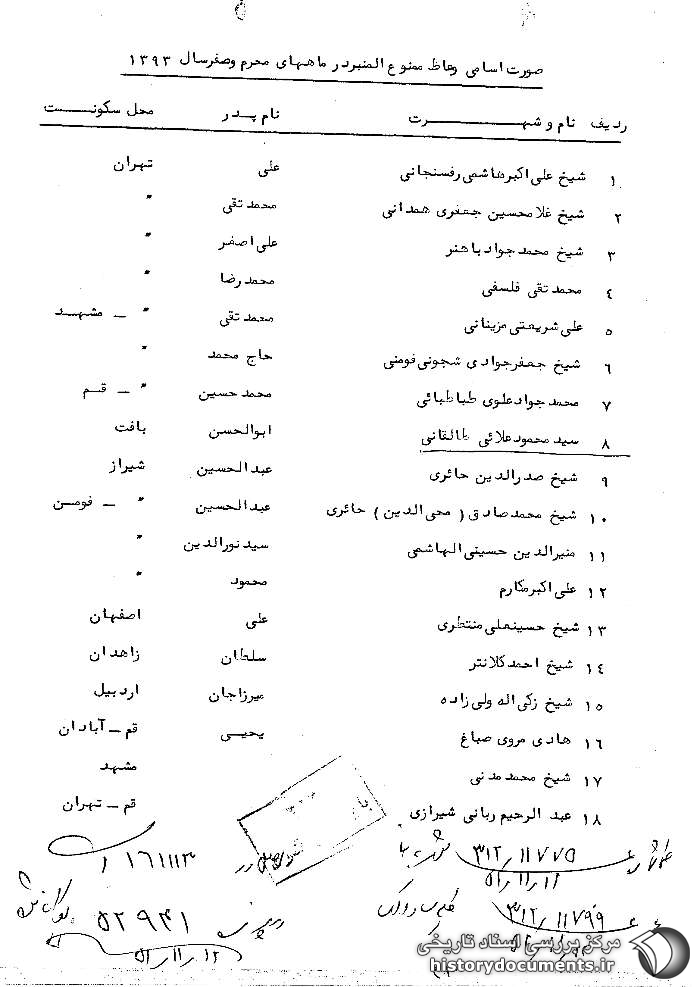 صورت اسامی وعاظ ممنوع المنبر در ماههای محرم و صفر سال ۱۳۹۳
ردیف نام و شهرت نام پدر محل سکونت
۱ شیخ علی اکبر هاشمی رفسنجانی علی تهران
۲ شیخ غلامحسین جعفری همدانی محمد تقی "
۳ شیخ محمد جواد باهنر علی اصغر "
۴ محمد تقی فلسفی محمد رضا "
۵ علی شریعتی مزینانی محمد تقی " ـ مشهد
۶ شیخ جعفر جوادی شجونی فومنی حاج محمد "
۷ محمد جواد علوی طباطبائی محمد حسین " ـ قم
۸ سید محمود علائی طالقانی ابوالحسن بافت
۹ شیخ صدرالدین حائری عبدالحسین شیراز
۱۰ شیخ محمد صادق ( محی الدین ) حائری عبدالحسین " ـ فومن
۱۱ منیرالدین حسینی الهاشمی سید نورالدین "
۱۲ علی اکبر مکارم محمود "
۱۳ شیخ حسینعلی منتظری علی اصفهان
۱۴ شیخ احمد کلانتر سلطان زاهدان
۱۵ شیخ زکی اله ولی زاده میرزاجان اردبیل
۱۶ هادی مروی صباغ یحیی قم ـ آبادان
۱۷ شیخ محمد مدنی مشهد
۱۸ عبدالرحیم ربانی شیرازی قم ـ تهران
۳۱۲/۱۱۷۷۵ ۱۶۱۱۱۳
۳۱۲/۱۱۷۹۹ ۵۲۹۴۱
۵۱/۱۱/۱۲
مرکز بررسی اسناد تاریخی
historydocuments.ir